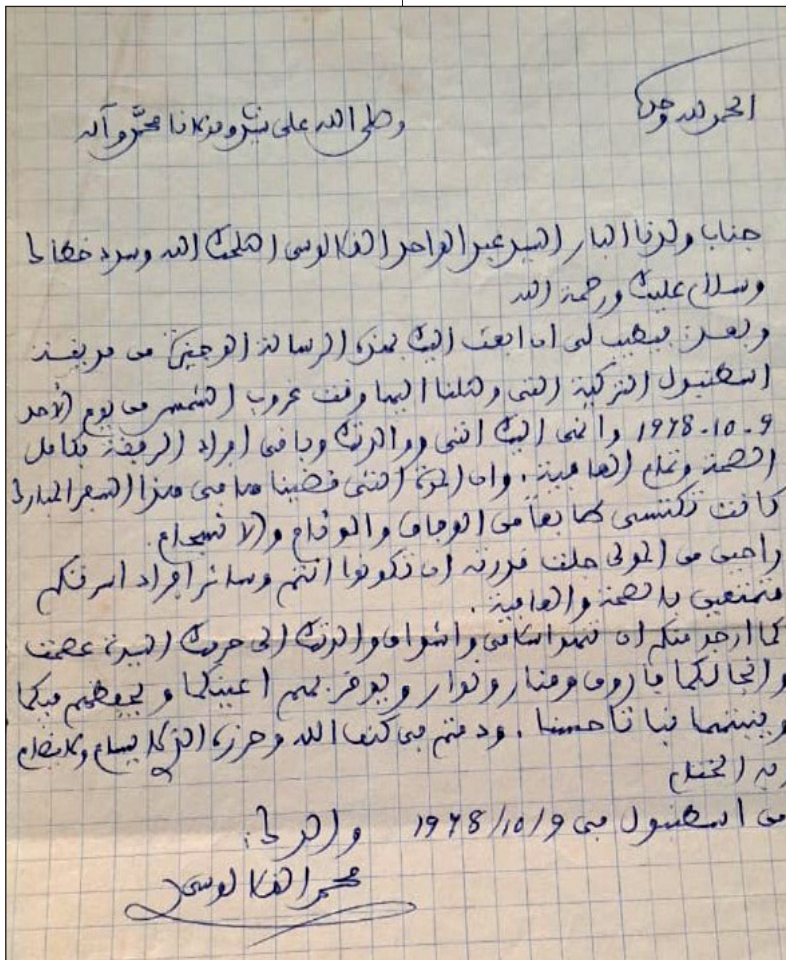 الحمد لله وحده وصلى الله على سيدنا ومولانا محمد وآله
جناب ولدنا البار السيد عبد الواحد الفكالوسي اصلحك الله وسدد خطاك
وسلام عليك ورحمة الله
وبعد فيطيب لي ان ابعث اليك بهذه الرسالة الوجيزة من مدينة
اسطنبول التركية التي وصلنا اليها وقت غروب الشمس من يوم الأحد
9-10-1978 وانهي اليك انني ووالدتك وباقي افراد الرفقة بكامل
الصحة وتمام العافية. وان المدة التي قضيناها في هذا السفر المبارك
كانت تكتسي طابعا من الوفاق والوئام والانسجام.
راجين من المولى جلت قدرته ان تكونوا انتم وسائر افراد اسرتكم
متمتعين بالصحة والعافية.
كما ارجو منكم ان واشواق والدتك الى حرمك السيدة عصمت
وانجالكما فاروق ومنار ونوار ويقر بهم اعينكما ويحفظهم فيكما
وينبتهما نباتا حسنا. ودمتم في كنف الله وحرزه الذي لا
الختام
من اسطنبول في 9/10/1978 والدك:
محمد الفكالوسي